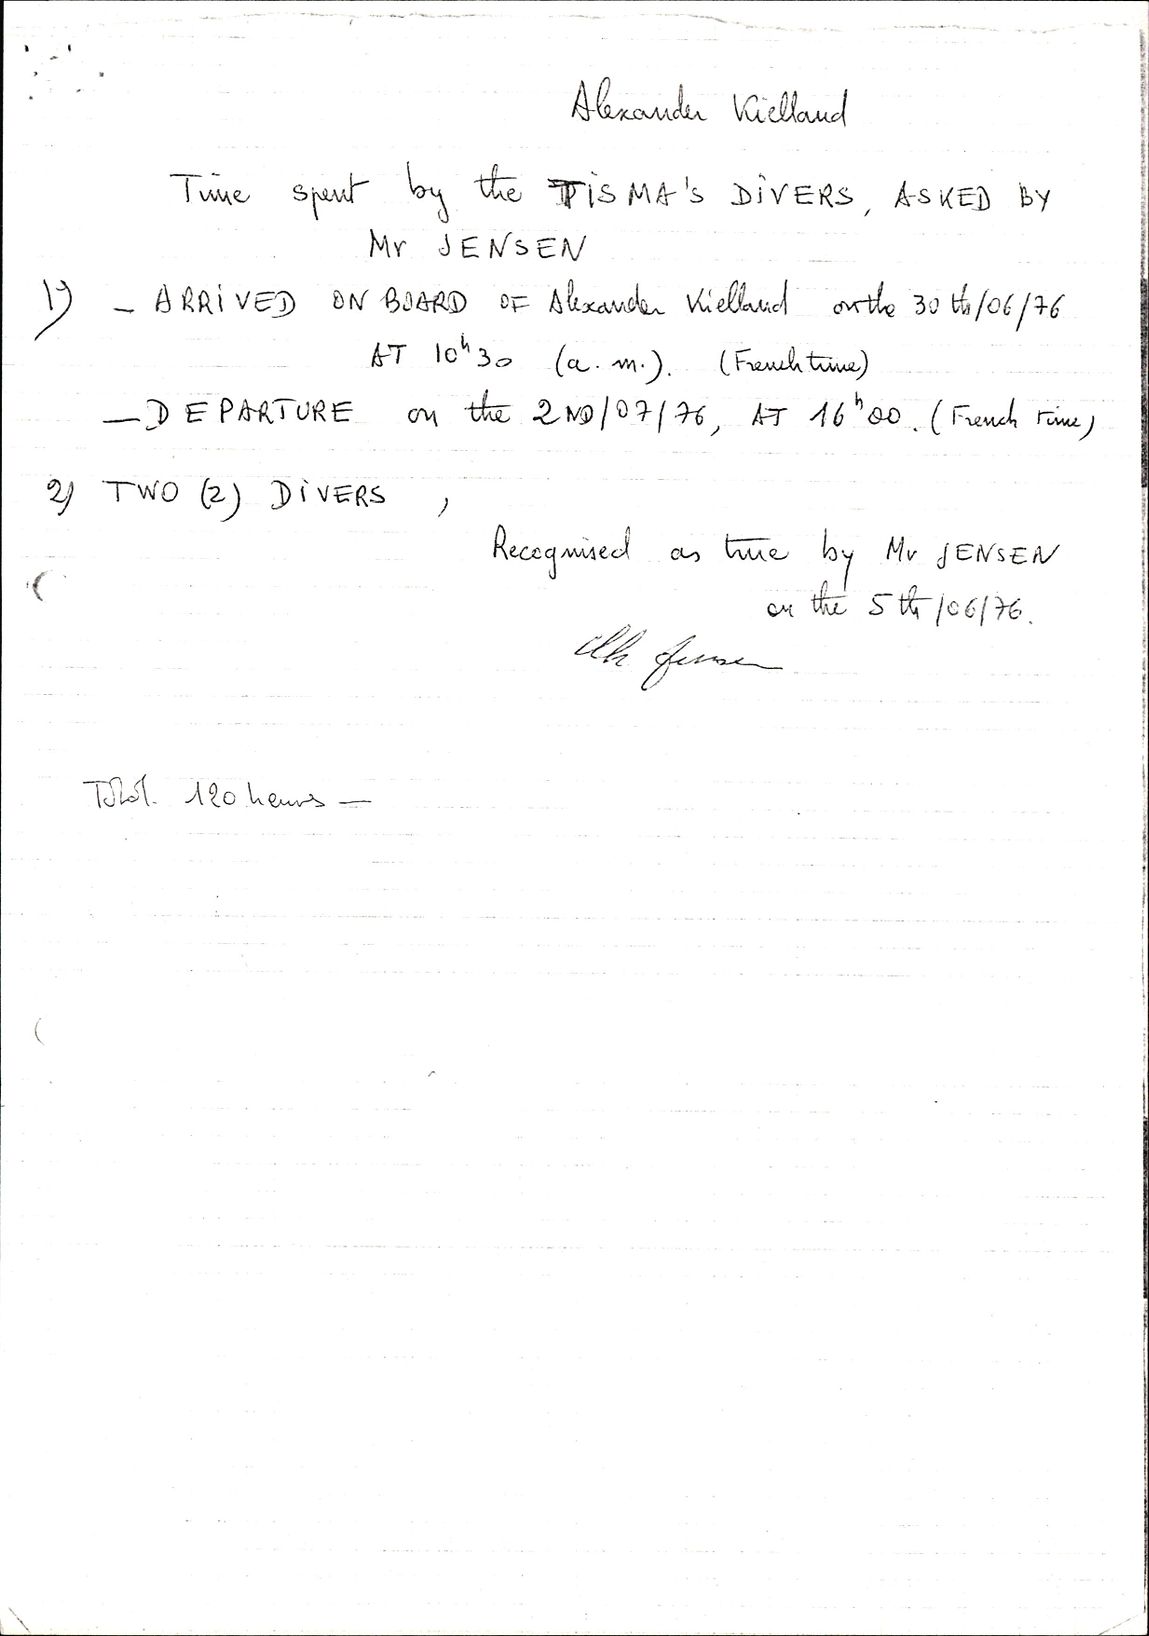 Alexander Kielland
Time spent by the TiSMA'S DiVERS, ASKED BY
Mr JENSEN
1) - ARRiVED ON BOARD OF Alexander Kielland on the 30 th/06/76
AT 10h30 (a.m.). (French time)
- DEPARTURE on the 2ND/07/76, AT 16h00. (French time)
2) TWO (2) DiVERS ,
Recognised as true by Mr JENSEN
on the 5th/06/76.
Jensen
Total. 120 heures -